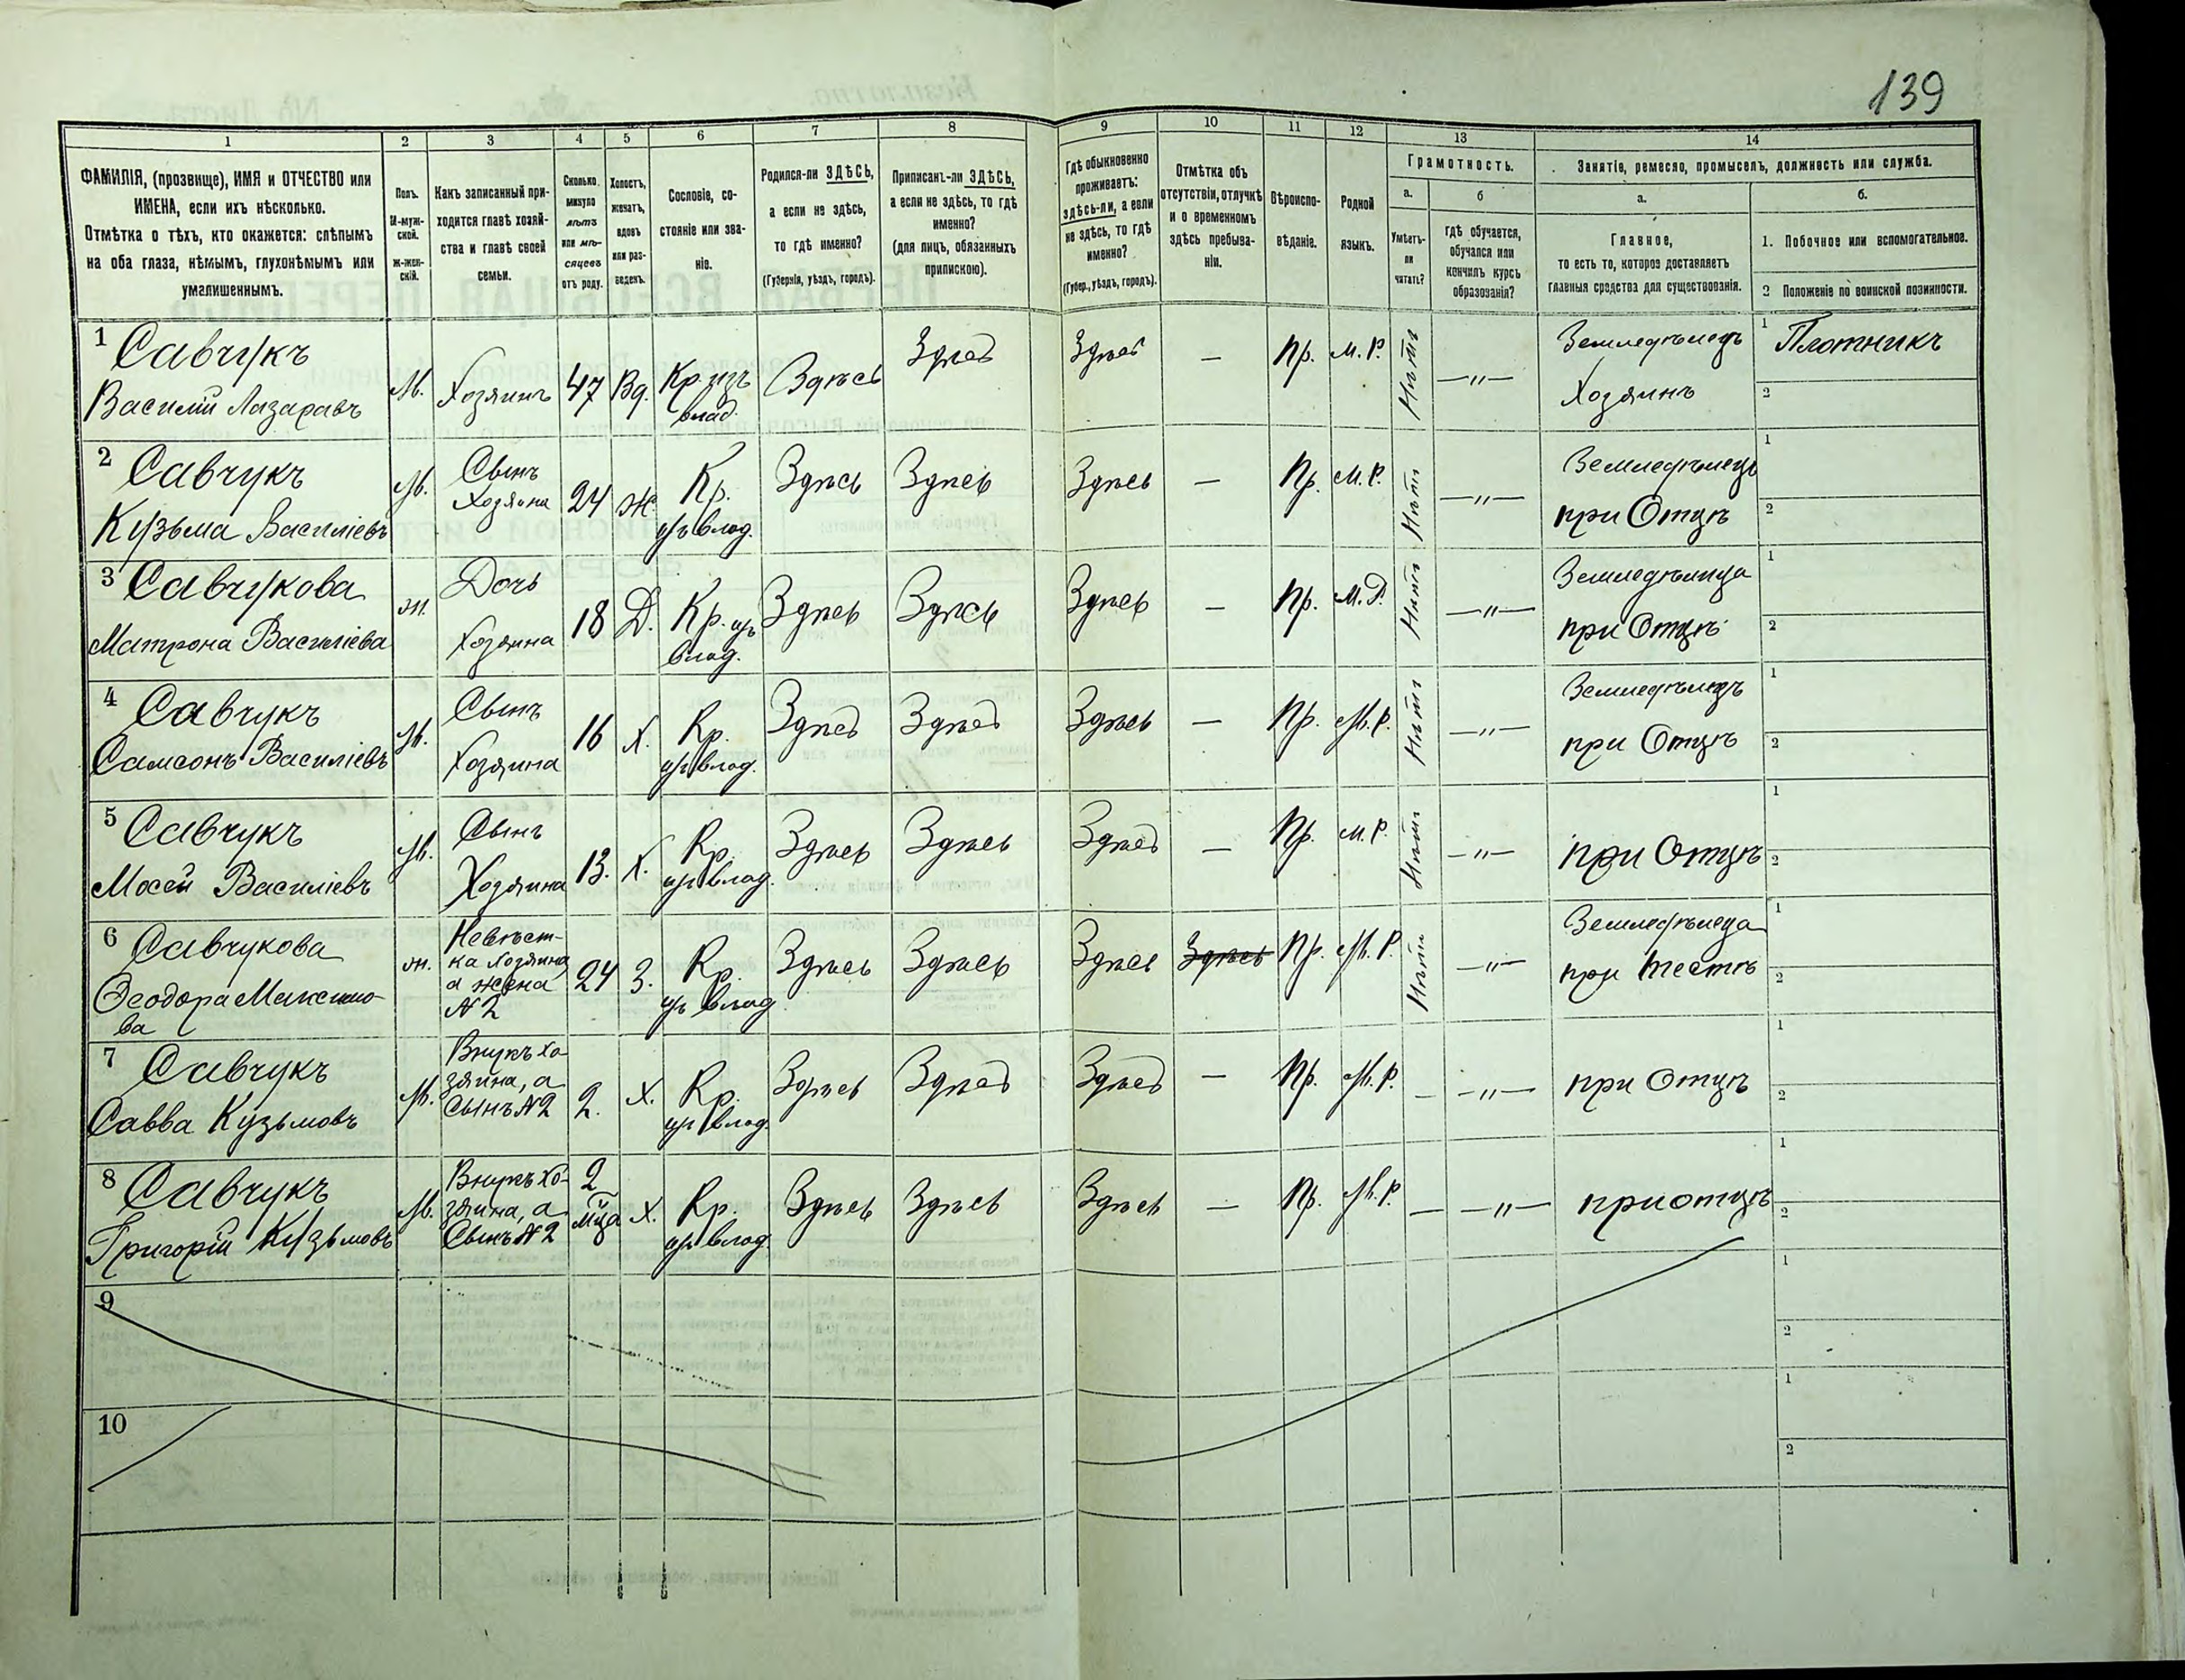 139
1 2 3 4 5 6 7 8 9 10 11 12 13 14
ФАМИЛІЯ, (прозвище), ИМЯ и ОТЧЕСТВО или
ИМЕНА, если ихъ нѣсколько.
Отмѣтка о тѣхъ, кто окажется: слѣпымъ
на оба глаза, нѣмымъ, глухонѣмымъ или
умалишеннымъ.
Полъ.
М-муж-
ской.
ж-жен-
скій.
Какъ записанный при-
ходится главѣ хозяй-
ства и главѣ своей
семьи.
Сколько
минуло
лѣтъ
или мѣ-
сяцевъ
отъ роду.
Холостъ,
женатъ,
вдовъ
или раз-
веденъ.
Сословіе, со-
стояніе или зва-
ніе.
Родился-ли ЗДѢСЬ,
а если не здѣсь,
то гдѣ именно?
(Губернія, уѣздъ, городъ).
Приписанъ-ли ЗДѢСЬ,
а если не здѣсь, то гдѣ
именно?
(для лицъ, обязанныхъ
припискою).
Гдѣ обыкновенно
проживаетъ:
здѣсь-ли, а если
не здѣсь, то гдѣ
именно?
(Губер., уѣздъ, городъ).
Отмѣтка объ
отсутствіи, отлучкѣ
и о временномъ
здѣсь пребыва-
ніи.
Вѣроиспо-
вѣданіе.
Родной
языкъ.
Грамотность.
а. б
Умѣетъ-
ли
читать?
гдѣ обучается,
обучался или
кончилъ курсъ
образованія?
Занятіе, ремесло, промыселъ, должность или служба.
а. б.
Главное,
то есть то, которое доставляетъ
главныя средства для существованія.
1. Побочное или вспомогательное.
2 Положеніе по воинской повинности.
1 Савчукъ
Василій Лазаравъ
М. Хозяинъ 47 Вд. Кр. изъ
влад.
Здѣсь Здѣсь Здѣсь — Пр. М. Р. Нѣтъ —"— Земледѣлецъ
Хозяинъ
1 Плотникъ
2
2 Савчукъ
Кузьма Василіевъ
М. Сынъ
Хозяина
24 Ж Кр.
изъ влад.
Здѣсь Здѣсь Здѣсь — Пр. М. Р. Нѣтъ —"— Земледѣлецъ
при Отцѣ
1
2
3 Савчукова
Матрона Василіева
ж. Дочь
Хозяина
18 Д. Кр. изъ
влад.
Здѣсь Здѣсь Здѣсь — Пр. М. Р. Нѣтъ —"— Земледѣлица
при Отцѣ
1
2
4 Савчукъ
Самсонъ Василіевъ
М. Сынъ
Хозяина
16 Х. Кр.
изъ влад.
Здѣсь Здѣсь Здѣсь — Пр. М. Р. Нѣтъ —"— Земледѣлецъ
при Отцѣ
1
2
5 Савчукъ
Мосей Василіевъ
М. Сынъ
Хозяина
13. Х. Кр.
изъ влад.
Здѣсь Здѣсь Здѣсь — Пр. М. Р. Нѣтъ —"— при Отцѣ
1
2
6 Савчукова
Ѳеодора Максимо-
ва
ж. Невѣст-
ка Хозяина,
а жена
№ 2
24 З. Кр.
изъ влад.
Здѣсь Здѣсь Здѣсь Здѣсь Пр. М. Р. Нѣтъ —"— Земледѣлеца
при Тестѣ
1
2
7 Савчукъ
Савва Кузьмовъ
М. Внукъ хо-
зяина, а
Сынъ № 2
2. Х. Кр.
изъ влад.
Здѣсь Здѣсь Здѣсь — Пр. М. Р. — —"— при Отцѣ
1
2
8 Савчукъ
Григорій Кузьмовъ
М. Внукъ хо-
зяина, а
Сынъ № 2
2
м̃ца
Х. Кр.
изъ влад.
Здѣсь Здѣсь Здѣсь — Пр. М. Р. — —"— при отцѣ
1
2
9
1
2
10
1
2